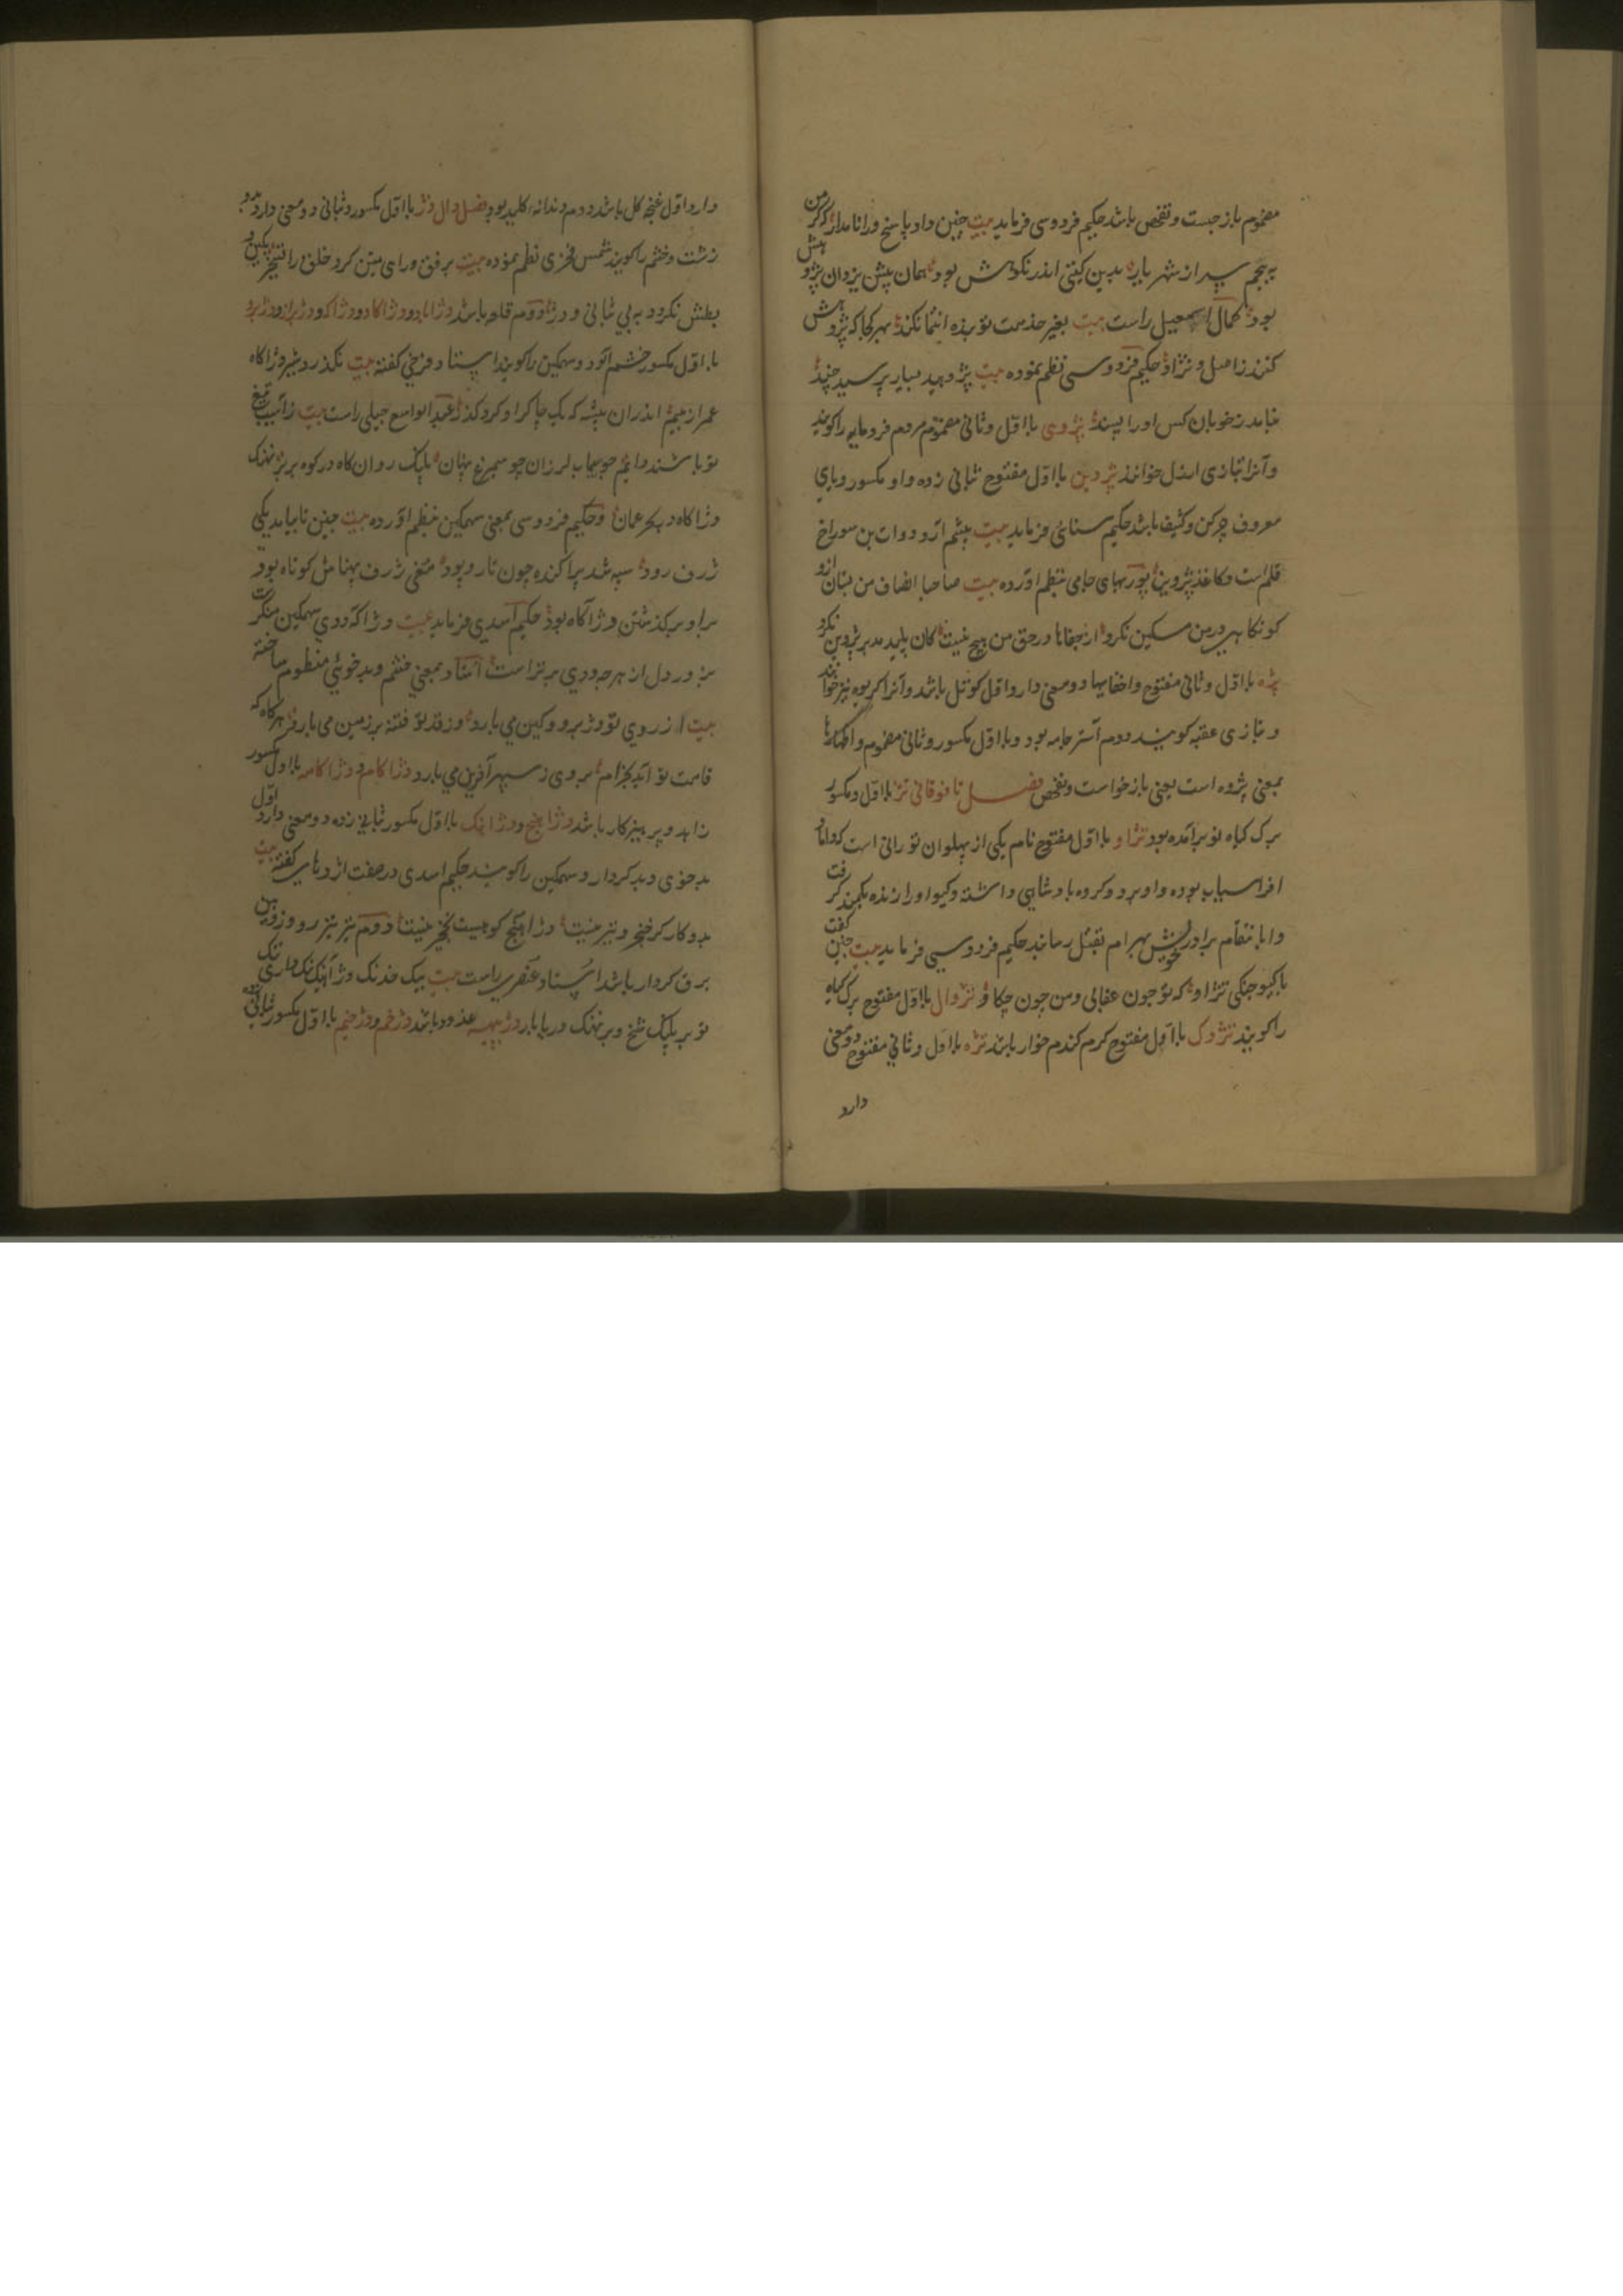 مضموم باز جست و تفحص باشد حکیم فردوسی فرماید بیت چنین داد پاسخ ورا نامدار که گر من
بپیچم سر از شهریار بدین کیتی اندر نکوهش بود همان پیش یزدان پژوهش
بود کمال اسمعیل راست بیت بغیر خدمت تو بنده انتما نکند بهر کجا که پژوهش
کنند ز اصل و نژاد حکیم فردوسی نظم نموده بیت پژوهید بسیار و پرسید چند
نیامد ز خوبان کس او را پسند پژوی با اول و ثانی مضموم مردم فرومایه را کویند
و آنرا بتازی ارذل خوانند پژوین با اول مفتوح بثانی زده و واو مکسور و یای
معروف چرکن و کثیف باشد حکیم سنائی فرماید بیت چشم او دوات بن سوراخ
قلم است و کاغذ پژوین پوربهای جامی بنظم اورده بیت صاحبا انصاف من بستان ازو
کو نکاهی در من مسکین نکرد از جفاها در حق من هیچ نیست کان پلید مدبر پژوین نکرد
پژه با اول و ثانی مفتوح و اخفای ها دو معنی دارد اول کوتل باشد و آنرا کریوه نیز خوانند
و بتازی عقبه کویند دوم آستر جامه بود و با اول مکسور و ثانی مضموم و اظهار ها
بمعنی پژوه است یعنی بازخواست و تفحص فصل تا فوقانی تژ با اول مکسور
برک کیاه نو برآمده بود تژاو با اول مفتوح نام یکی از پهلوان تورانی است که داماد
افراسیاب بوده و او پرورده پادشاهی داشته و کیو او را زنده بکمند گرفت
و او را بانتقام برادر خویش بهرام بقتل رساند حکیم فردوسی فرماید بیت چنین گفت
با کیو جنکی تژاو که تو چون عقابی و من چون چکاو تژوال با اول مفتوح برک کیاه
را کویند تژوک با اول مفتوح کرم کندم خوار باشد تژه با اول و ثانی مفتوح دو معنی
دارد
دارد اول غنچه کل باشد دوم دندانه کلید بود فصل دال دژ با اول مکسور و ثانی دو معنی دارد بد و
زشت و خشم را کویند شمس فخری نظم نموده بیت برفق و رای متین کرد خلق را تسخیر
بطش نکرد و به بی ثباتی و دژ دوم قلعه باشد دژاباد و دژاکاد و دژاکه و دژبراز و دژبرو
با اول مکسور خشم آلود و سهمکین را کویند استاد فرخی کفته بیت نکذرد شیر دژاکاه
عمر از بیم اندران بیشه که یک چاکر او کرد کذر عبد الواسع جبلی راست بیت ز آسیب تیغ
تو باشند دایم چو سیماب لرزان چو سیمرغ پنهان پلنک روان کاه در کوه بربر نهنک
دژاکاه در بحر عمان و حکیم فردوسی بمعنی سهمکین بنظم اورده بیت چنین تا بیامد یکی
ژرف رود سپه شد پراکنده چون تار و پود متغی ژرف پهنا مش کوتاه بود
بر او بر کذشتن دژآکاه بود حکیم اسدی فرماید بیت دژاکه ددی سهمکین منکرست
بزور دل از هر ددی برترست استاد بمعنی خشم و بدخوئی منظوم ساخته
بیت از روی تو دژ برو و کین می بارد وز قد تو فتنه بر زمین می بارد هرکاه که
قامت تو آید بخرام بر وی ز سپهر آفرین می بارد دژاکام و دژاکامه با اول مکسور
زاهد و پرهیزکار باشد دژآهنج و دژاهنک با اول مکسور بثانی زده دو معنی دارد اول
بدخوی و بدکردار و سهمکین را کویند حکیم اسدی در صفت اژدهای کفته بیت
بدو کارکر خنجر و تیر نیست دژآهنج کوهیست نخچیر نیست دوم تیز تیز رو و زوبین
برق کردار باشد استاد عنصری راست بیت بیک خدنک دژآهنک جنک داری تنک
تو بر پلنک شخ و بر نهنک دریا بار دژپیه غدود باشد دژخم و دژخیم با اول مکسور بثانی زده